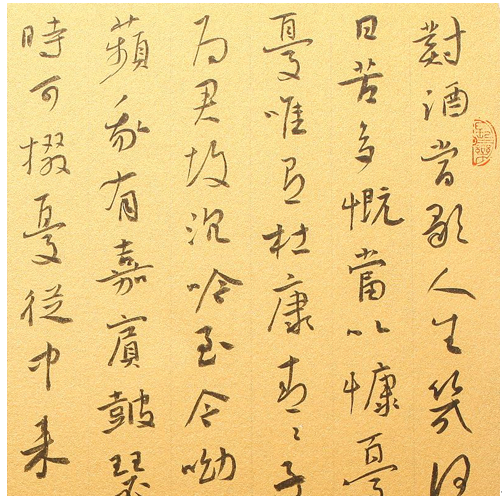 對酒當歌人生幾何
日苦多慨當以慷憂
憂唯有杜康青々子
為君故沉吟至今呦
蘋我有嘉賓鼓瑟
時可掇憂從中来